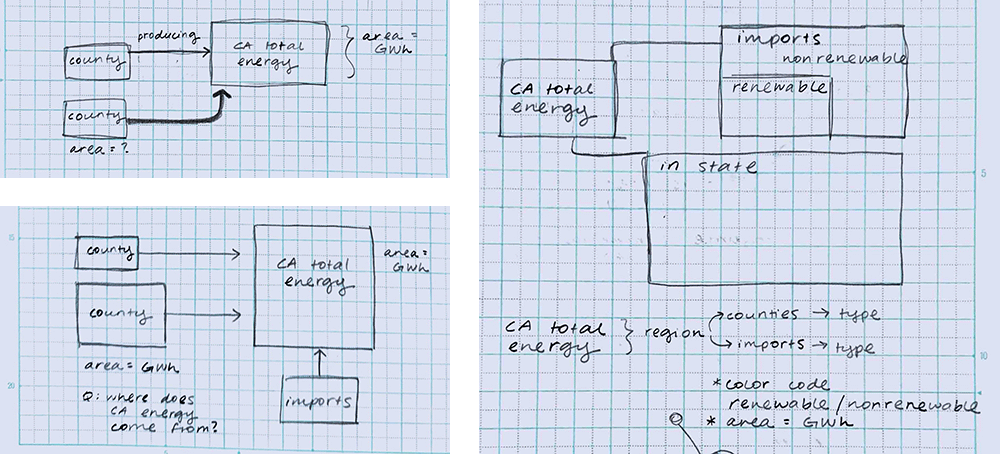 producing
county
CA total
energy
area =
GWh
county
area = ?
county
CA total
energy
area =
GWh
county
area = GWh
Q: where does
CA energy
come from?
imports
imports
nonrenewable
CA total
energy
renewable
in state
5
CA total
energy
region
counties → type
imports → type
*color code
renewable/nonrenewable
* area = GWh
15
20
10